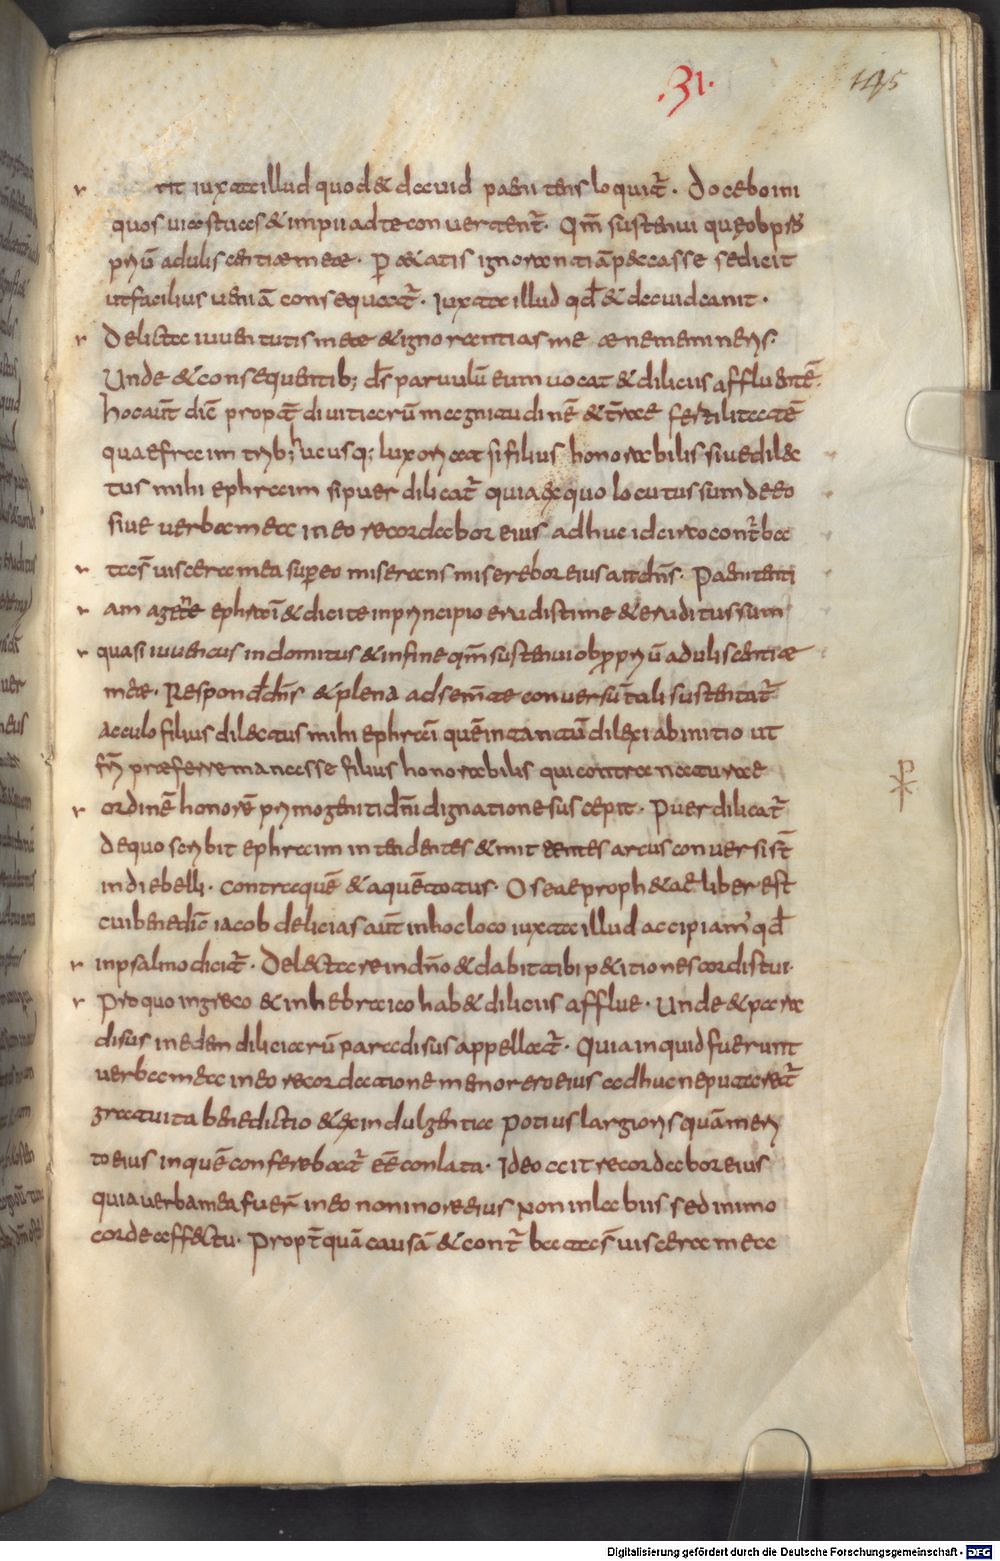 .31.
145
rit iuxta illud quod & dauid paenitens loquit̄. Docebo ini
quos uias tuas & impii ad te conuertent̄. Qm̄ sustenui quę obpro
priū aduliscentiæ meæ. Peccatis ignorantiā peccasse se dicit
ut facilius ueniā consequat̄. Iuxta illud qd̄ & dauid canit.
Delicta iuuentutis meæ & ignorantias meæ ne memineris.
Unde & consequentib; ds̄ paruulū eum uocat & diliciis affluentē.
hoc aut̄ dic̄ propt̄ diuitiarū magnitudinē & terræ fertilitatē
quae fraim trib; hucusq; luxoriat si filius honorabilis siue dilec
tus mihi ephraim si puer dilicat̄ quia ex quo locutus sum de eo
siue uerba mea in eo recordabor eius adhuc idcirco cont̄ba
ta es̄ uiscera mea super eo miserans miserebor eius ait dn̄s. Paenitenti
am agente ephraī & dicite in principio erudisti me & eruditus sum
quasi iuuencus indomitus & in fine qm̄ sustenui obpropriū aduliscentiæ
meæ. Respond̄ dn̄s & plena ad sem̄tæ conuersū tali sustentat̄
acculo filius dilectus mihi ephraī quē in tantū dilexi ab initio ut
fr̄i præferre manasse filius honorabilis qui contra naturæ
ordinē honorē primogeniti dn̄i dignatione suscepit. Puer dilicat̄
de quo scribit ephraim intendentes & mittentes arcus conuersi st̄
in die belli. contra quē & a quē totus. Oseae proph&ae liber est
cui benedic̄ iacob delicias aut̄ in hoc loco iuxta illud accipiam' qd̄
in psalmo dicit̄. Delectare in dn̄o & dabit tibi petitiones cordis tui.
Pro quo in greco & in hebraico hab& diliciis afflue. Unde & para
disus in eden diliciarū paradisus appellat̄. Quia inquid fuerunt
uerba mea in eo recordatione memorero eius adhuc ne putaret̄
gratuita benedictio & ex indulgentia potius largioris quā meri
to eius in quē conferebat̄ eē conlata. Ideo ait recordabor eius
quia uerba mea fuer̄ in eo non in ore eius Non in labiis sed in imo
corde affectu. Propt̄ quā causā & cont̄batæ s̄ uiscera mea
Digitalisierung gefördert durch die Deutsche Forschungsgemeinschaft - DFG